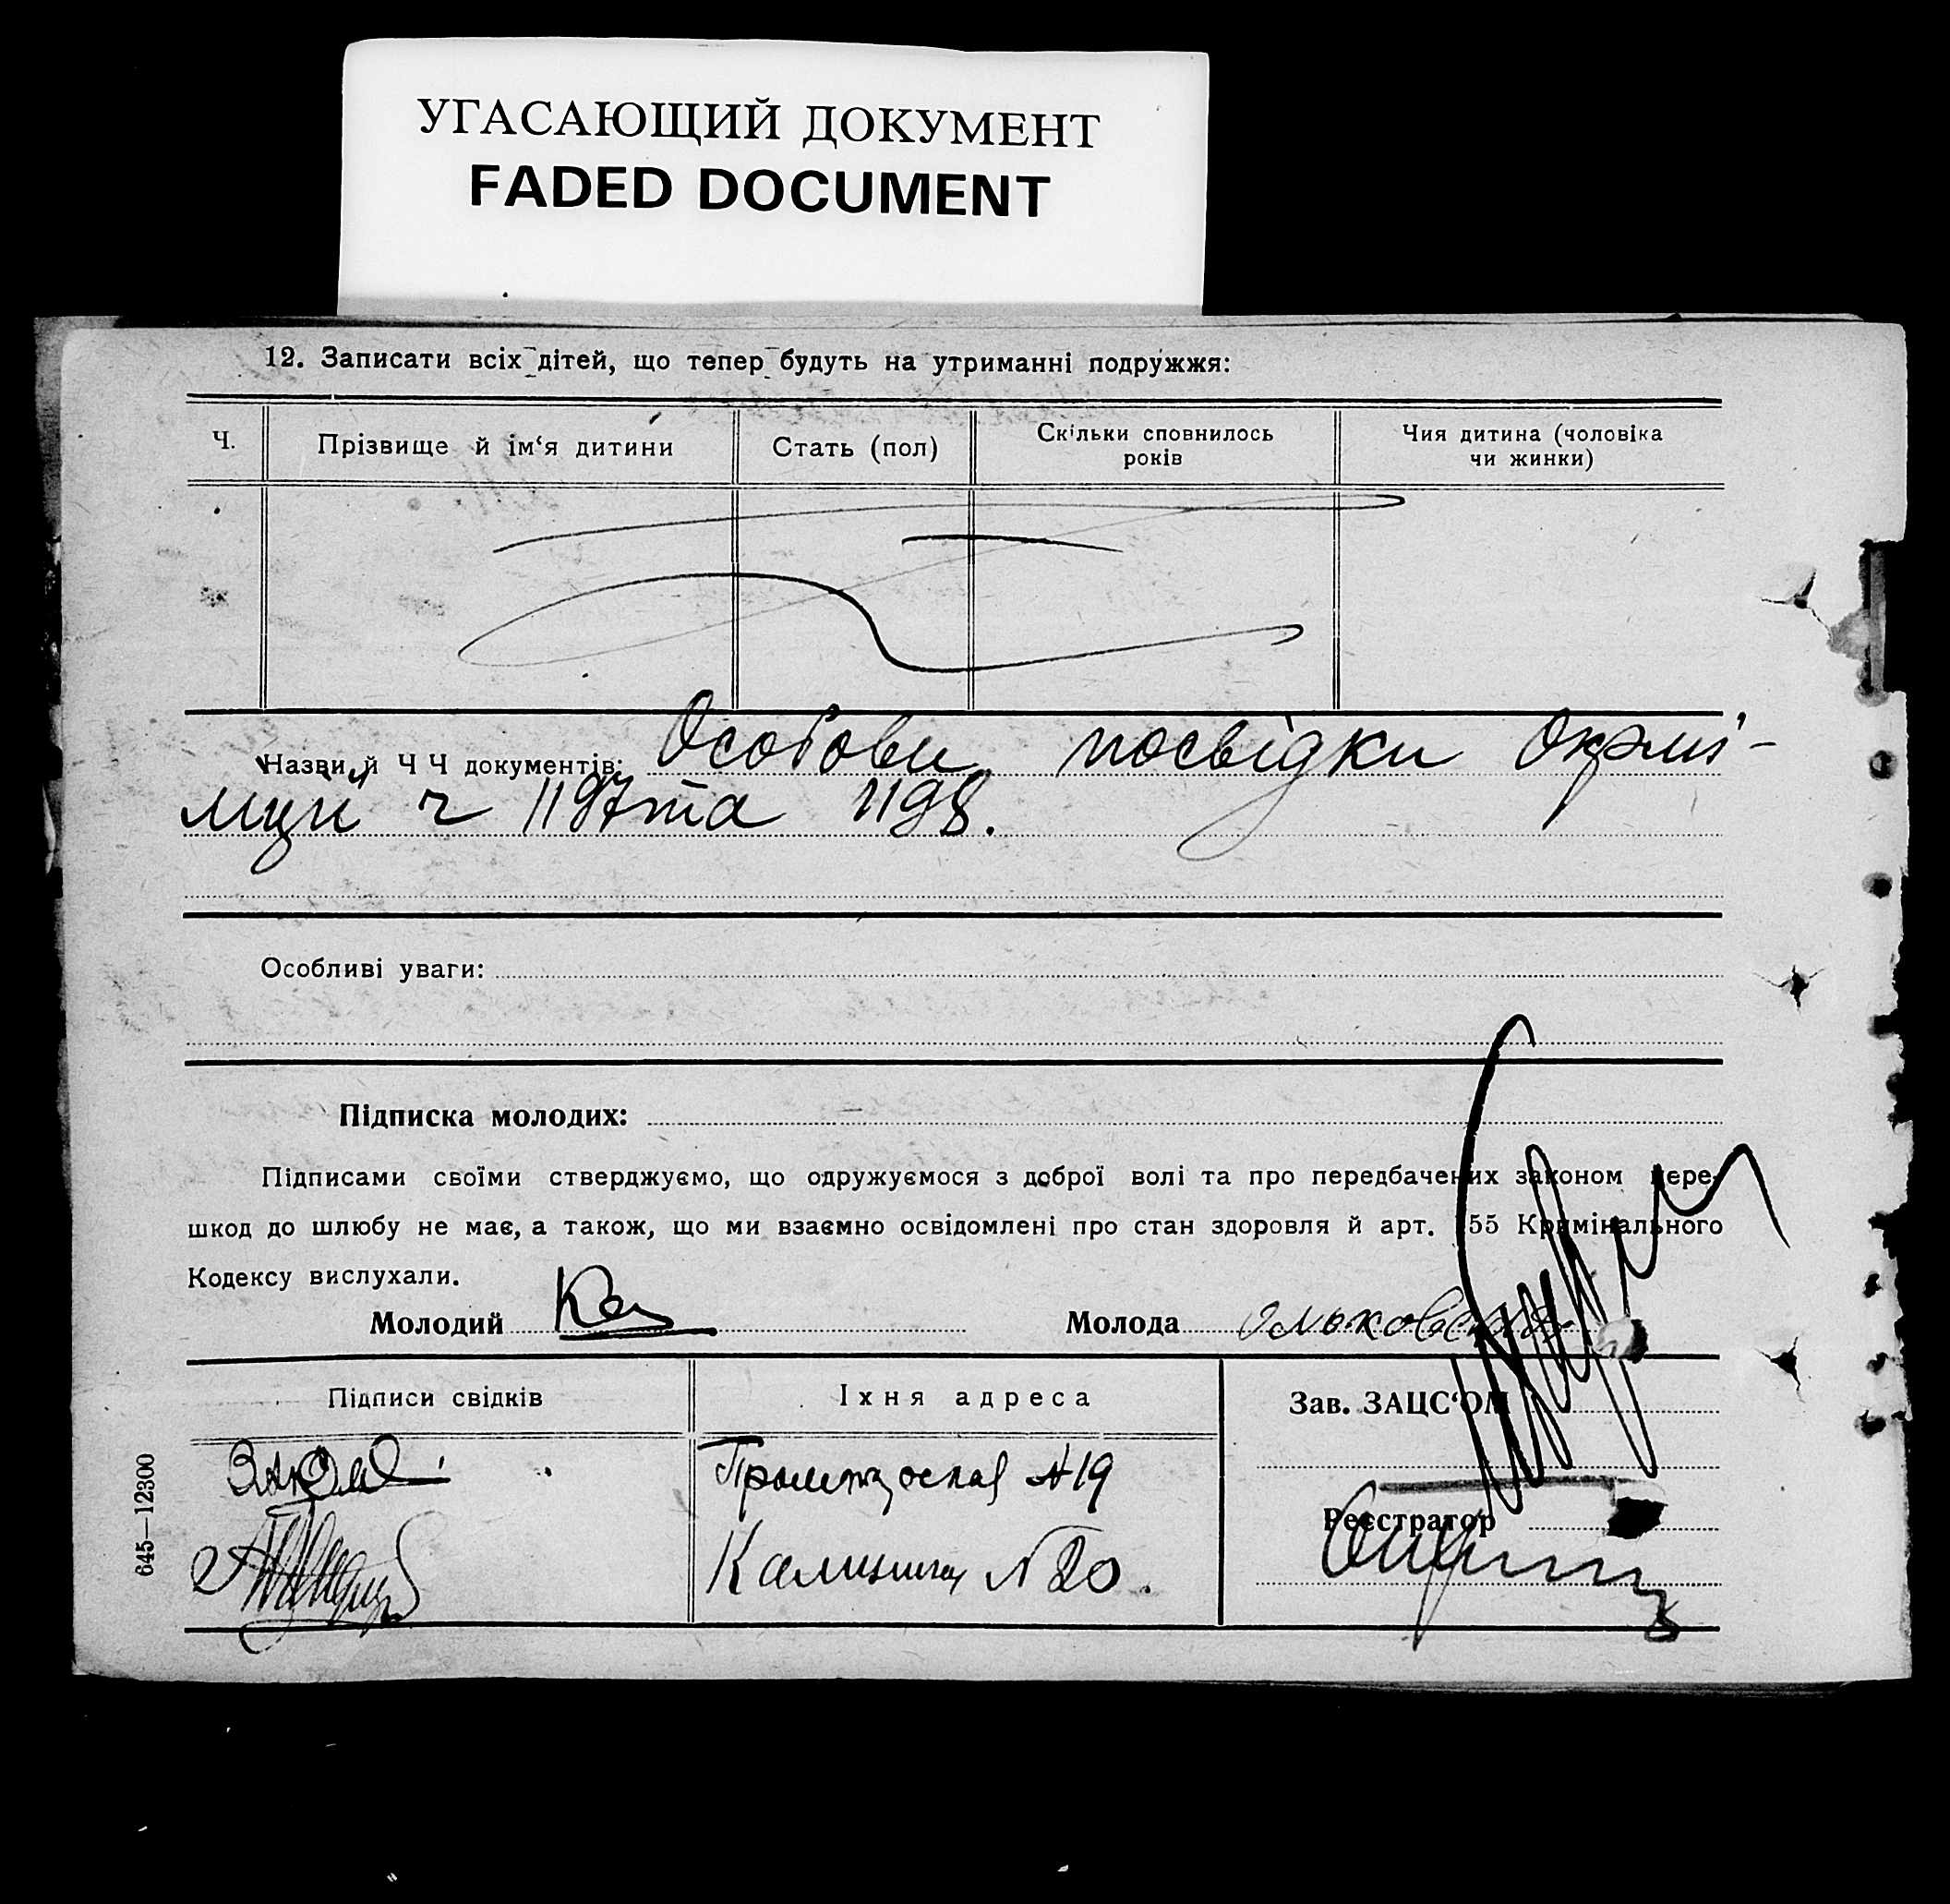 УГАСАЮЩИЙ ДОКУМЕНТ
FADED DOCUMENT
12. Записати всіх дітей, що тепер будуть на утриманні подружжя:
Ч.
Прізвище й ім‘я дитини
Стать (пол)
Скільки сповнилось
років
Чия дитина (чоловіка
чи жинки)
Назви й Ч Ч документів: Особови посвідки Окрмі-
лиції ч 1197 та 1198.
Особливі уваги:
Підписка молодих:
Підписами своїми стверджуємо, що одружуємося з доброї волі та про передбачених законом пере-
шкод до шлюбу не має, а також, що ми взаємно освідомлені про стан здоровля й арт. 155 Кримінального
Кодексу вислухали.
Молодий
Молода
Підписи свідків
Їхня адреса
Зав. ЗАЦС‘ОМ
№19
Реєстратор
Калинина №20.
645—12300